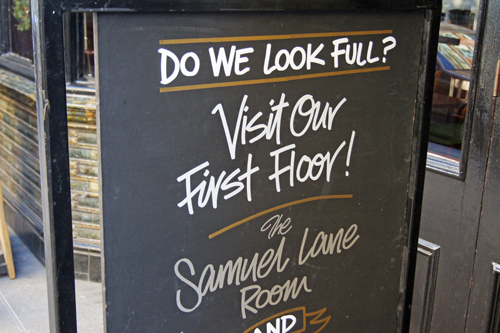 DO WE LOOK FULL?
Visit Our
First Floor!
The
Samuel Lane
ROOM
AND